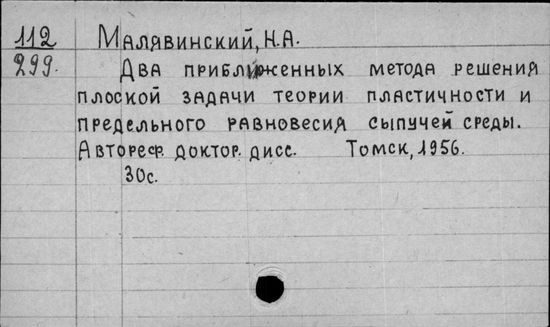 112 Малявинский, Н.А.
299. Два приближенных метода решения
плоской задачи теории пластичности и
предельного равновесия сыпучей среды.
Автореф. доктор. дисс. Томск, 1956.
30с.